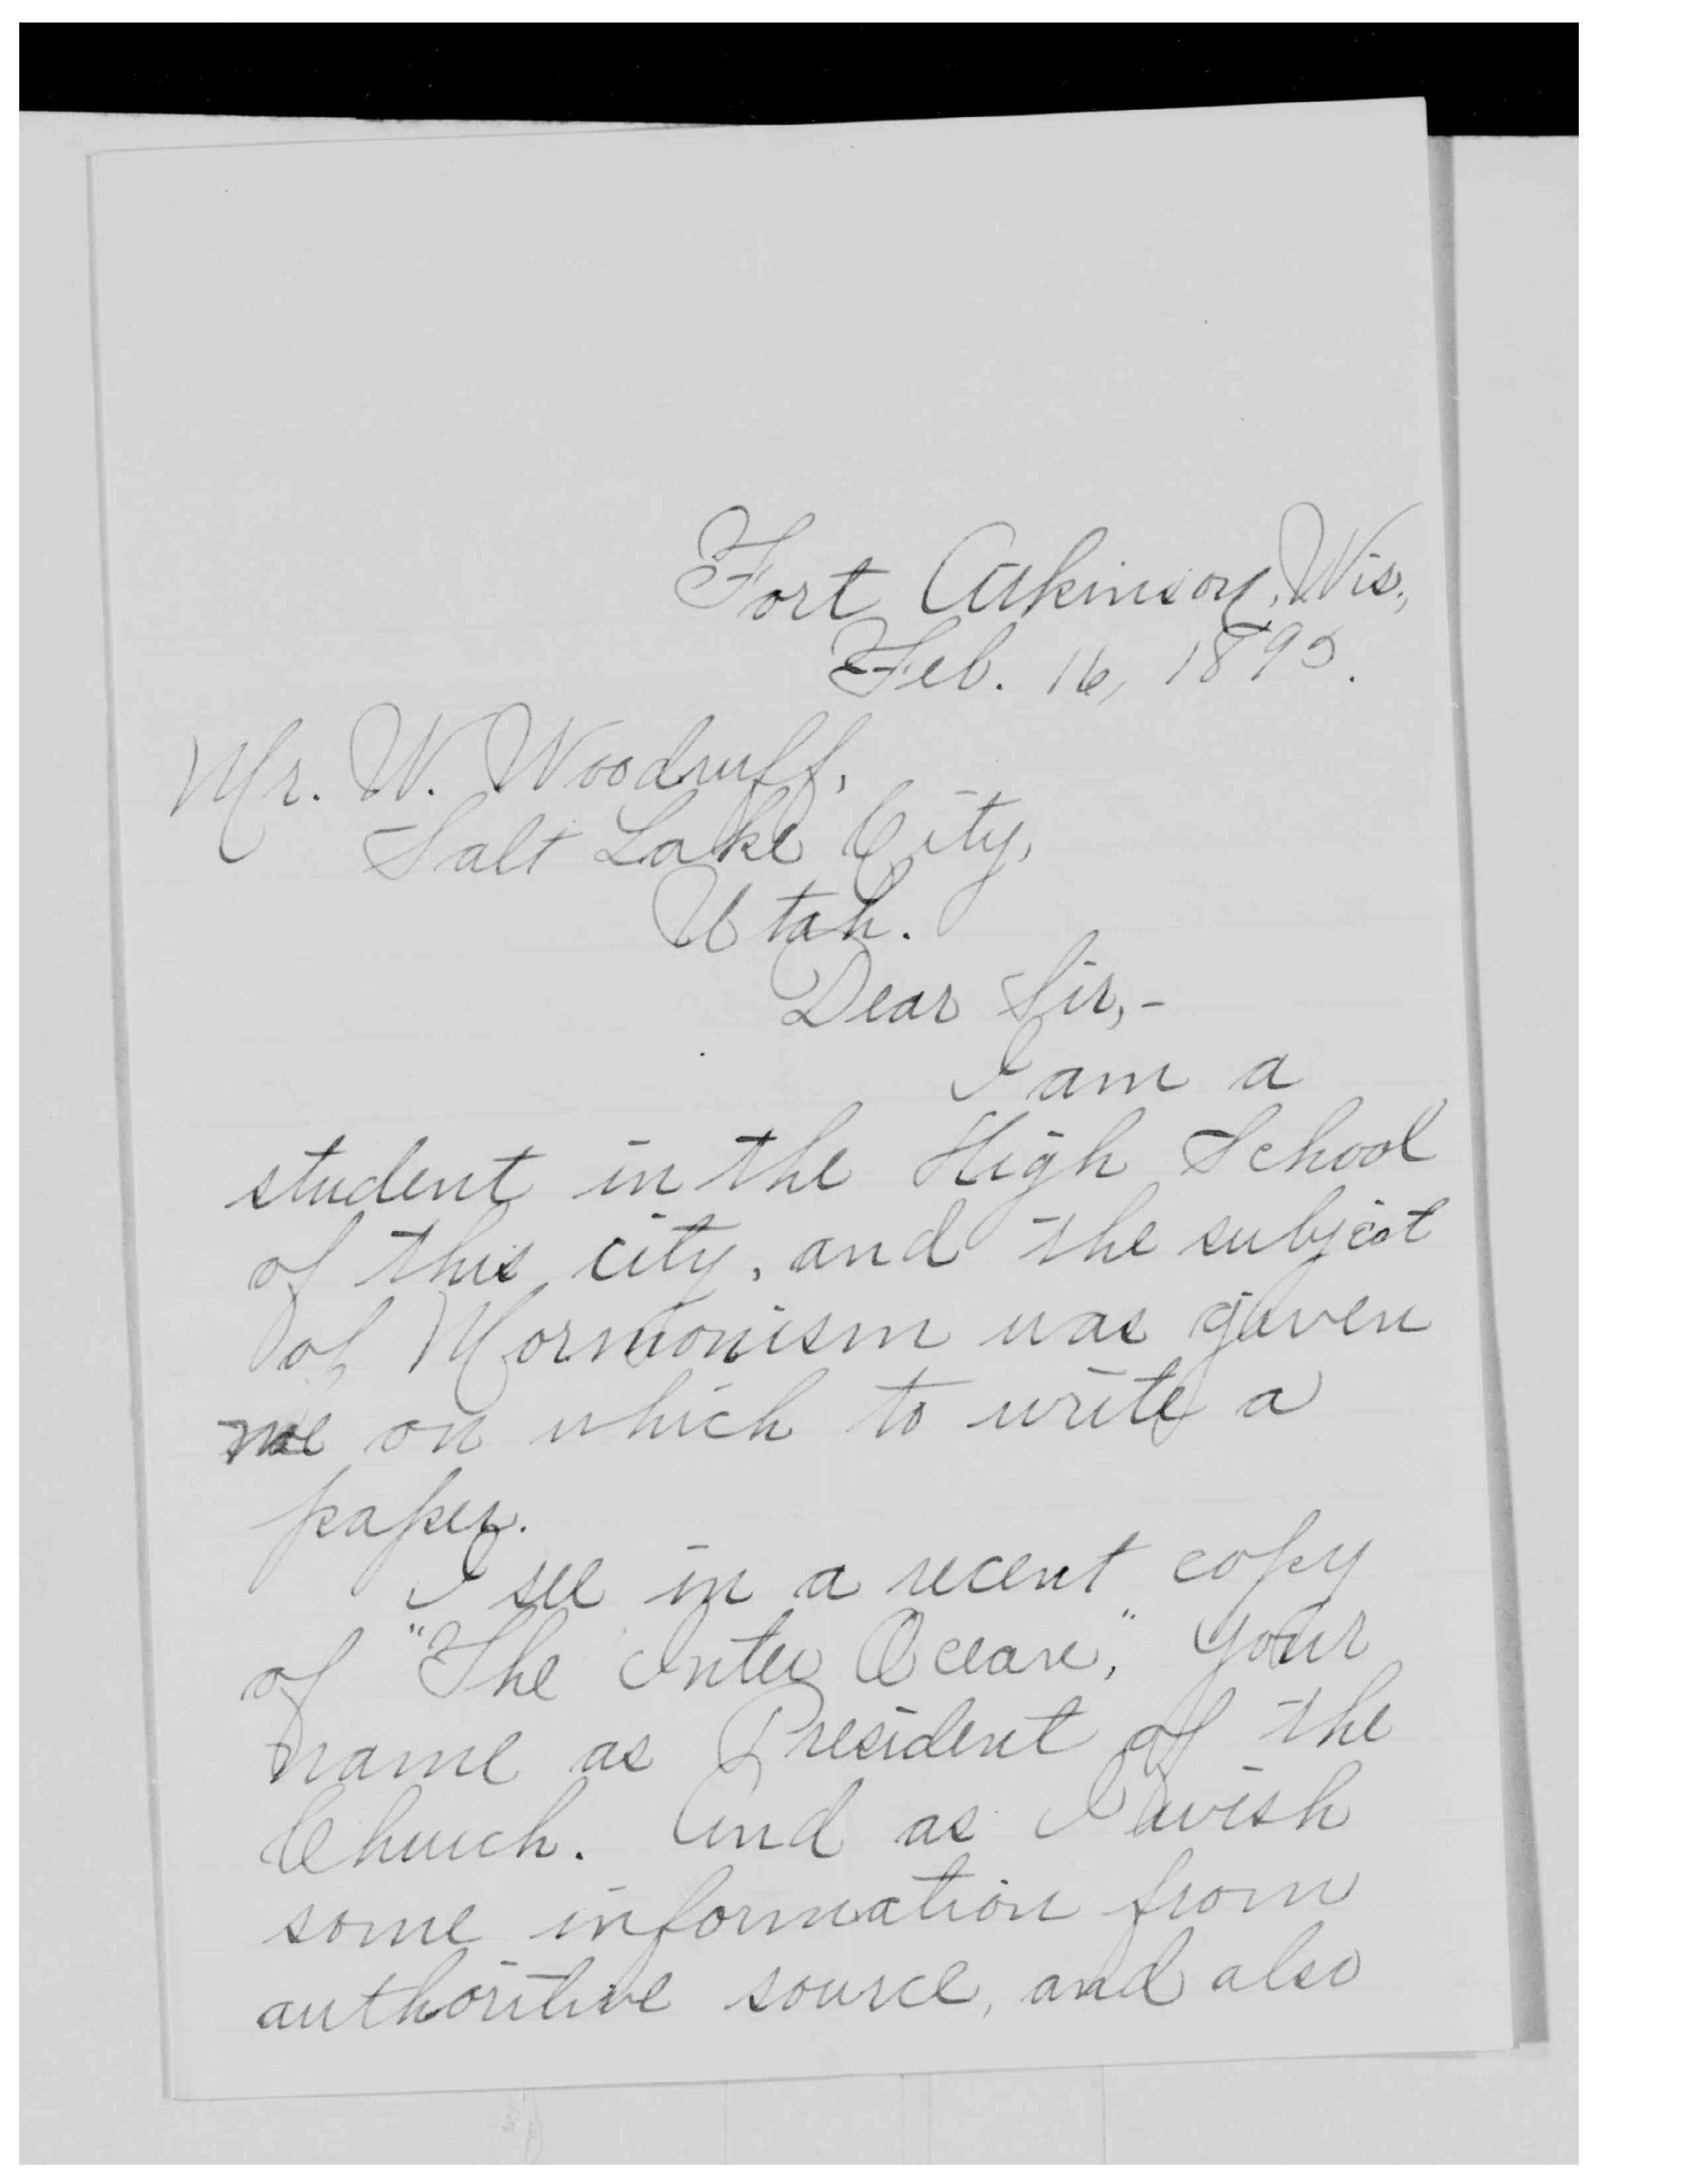 Fort Atkinson, Wis.,
Feb. 16, 1895.
Mr. W. Woodruff,
Salt Lake City,
Utah.
Dear Sir,-
I am a
student in the High School
of this city, and the subject
of Mormonism was given
me on which to write a
paper.
I see in a recent copy
of "The Inter Ocean," your
name as President of the
Church. And as I wish
some information from
authoritive source, and also